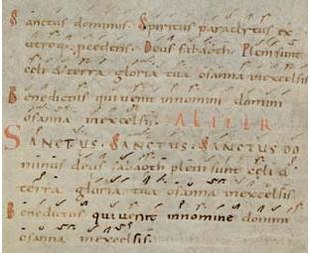 Sanctus dominus. Spiritus paraclytus ex
utroq; procedens. Deus sabaoth. Pleni sunt
celi & terra gloria tua osanna inexcelsis
Benedictus qui uenit innomini domini
osanna inexcelsis. ALITER
SANCTUS. SANCTUS. SANCTUS DO
minus deus sabaoth pleni sunt celi &
terra gloria tua osanna inexcelsis.
Benedictus qui uenit innomine domini
osanna inexcelsis.